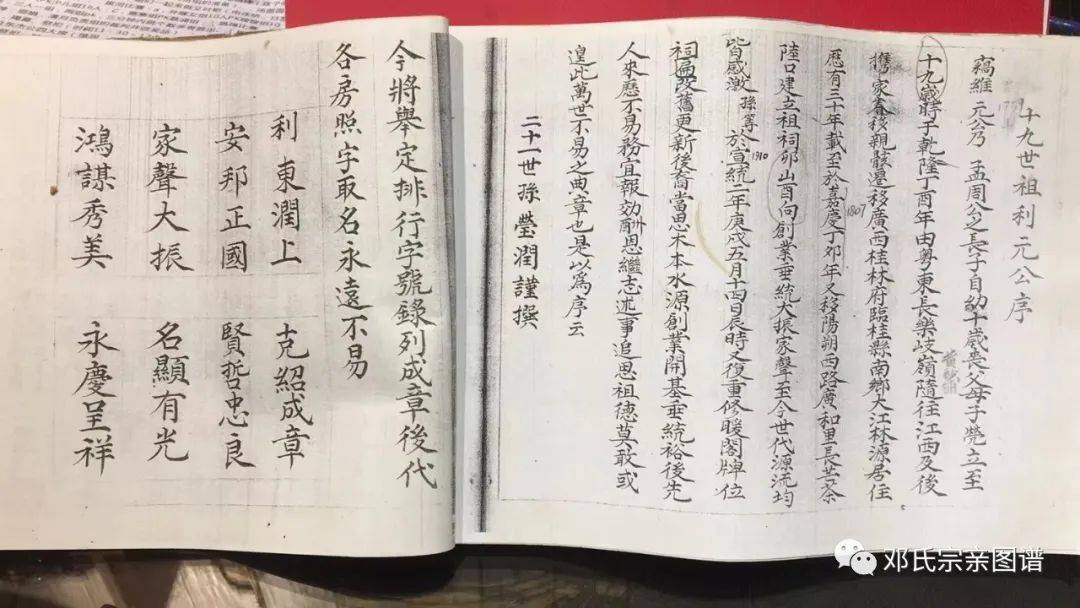 十九世祖利元公序
竊維 元公乃 孟周公之長子自幼十歲喪父母子煢立至
十九歲時于乾隆丁酉年由粵東長樂岐嶺隨往江西及後
攜家眷移親骸遷移廣西桂林府臨桂縣南鄉大江林源居住
歷有三十年載至於嘉慶丁卯年又移陽朔西路廣和里長其茶
1807
陸口建立祖祠卯山酉向創業垂統大振家聲至今世代源流均
皆自感激 孫等 於宣統二年庚戌五月十四日辰時又復重修暖閣牌位
1910
祠匾改舊更新後裔當思木本水源創業開基垂統裕後先
人來歷不易務宜報効酬恩繼志述事追思祖德莫敢或
遑此萬世不易之典章也是以為序云
二十一世孫瑩潤謹撰
今將舉定排行字號錄列成章後代
各房照字取名永遠不易
利東潤上 克紹成章
安邦正國 賢哲忠良
家聲大振 名顯有光
鴻謀秀美 永慶呈祥
邓氏宗亲图谱